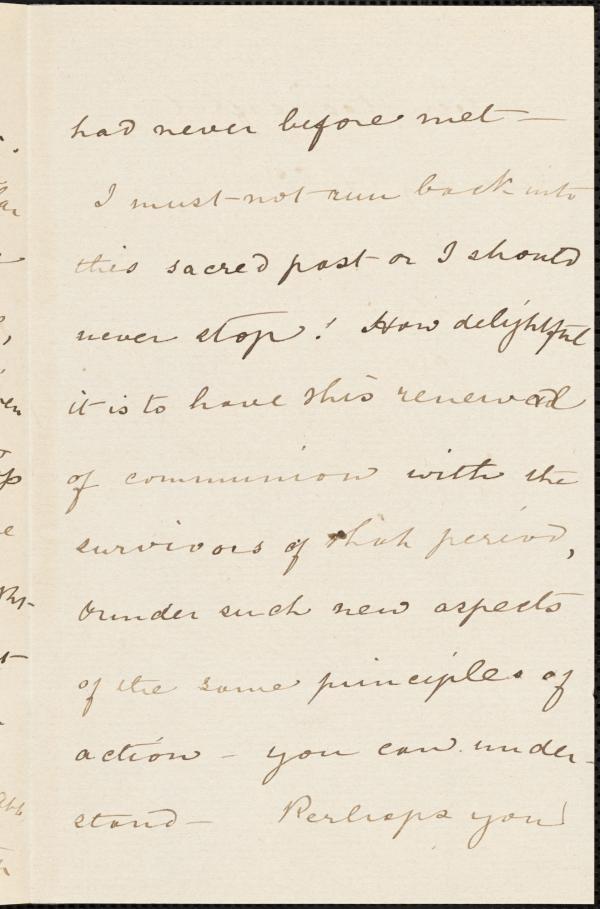 had never before met —
I must not run back into
this sacred past or I should
never stop! How delightful
it is to have this renewal
of communion with the
survivors of that period,
under such new aspects
of the same principles of
action — you can under-
stand — Perhaps you